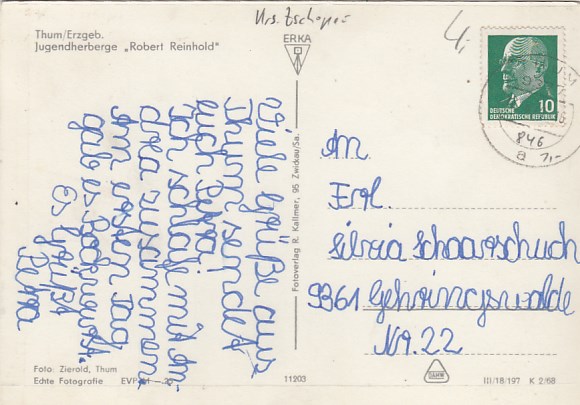 Krs. Zschopau
4,-
Thum/Erzgeb.
Jugendherberge „Robert Reinhold"
ERKA
10
DEUTSCHE
DEMOKRATISCHE REPUBLIK
846
a 7,-
Viele Grüße aus
Thum sendet
euch Petra
Ich schlafe mit An-
drea zusammen.
Am ersten Tag
gab es Bockwurst.
Es grüßt
Petra
Fotoverlag R. Kallmer, 95 Zwickau/Sa.
An
Frl.
Silvia Schaarschuch
9361 Gehringswalde
Nr. 22
Foto: Zierold, Thum
Echte Fotografie EVP
11203
DAHW
III/18/197 K 2/68